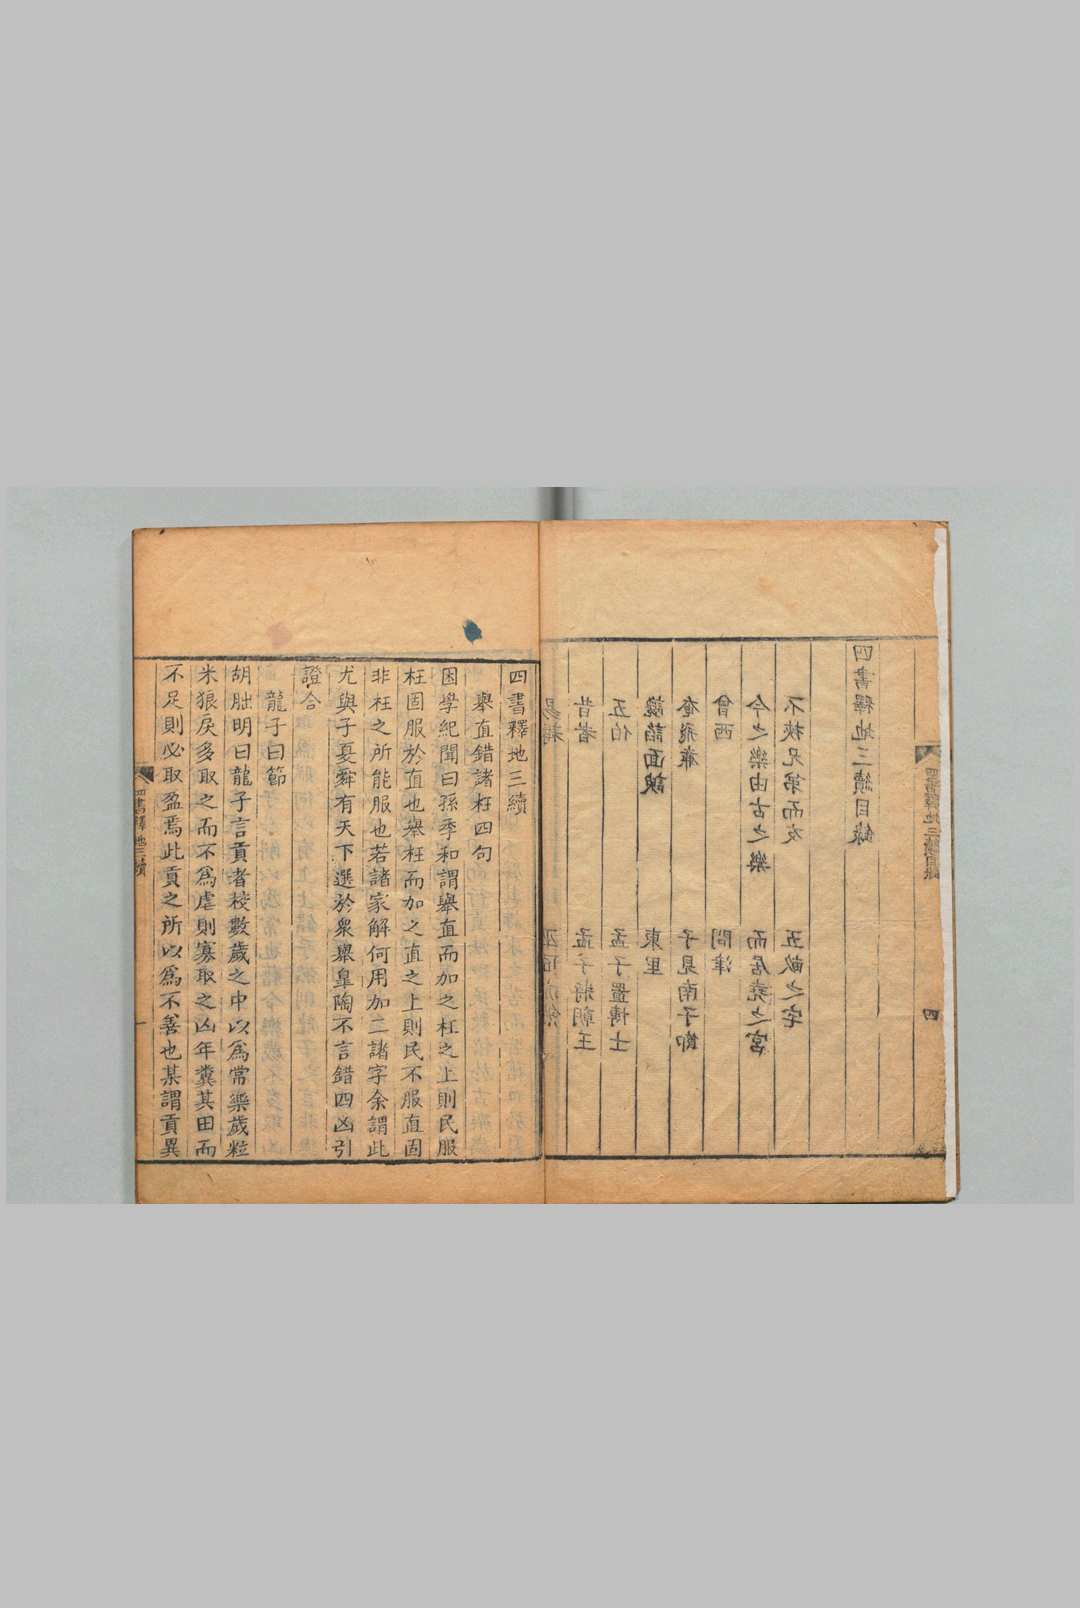 四書釋地三續目錄 四
四書釋地三續目錄
不挾兄弟而友 五畝之宅
今之樂由古之樂 而居堯之宮
曾西 問津
奄飛廉 子見南子節
讒諂面諛 東里
五伯 孟子置博士
昔者 孟子將朝王
易耨 巫匠亦然
四書釋地三續
舉直錯諸枉四句
困學紀聞曰孫季和謂舉直而加之枉之上則民服
枉固服於直也舉枉而加之直之上則民不服直固
非枉之所能服也若諸家解何用加二諸字余謂此
尤與子夏舜有天下選於衆舉皐陶不言錯四凶引
證合
龍子曰節
胡朏明曰龍子言貢者校數歲之中以爲常樂歲粒
米狼戾多取之而不爲虐則寡取之凶年糞其田而
不足則必取盈焉此貢之所以爲不善也某謂貢異
四書釋地三續 一